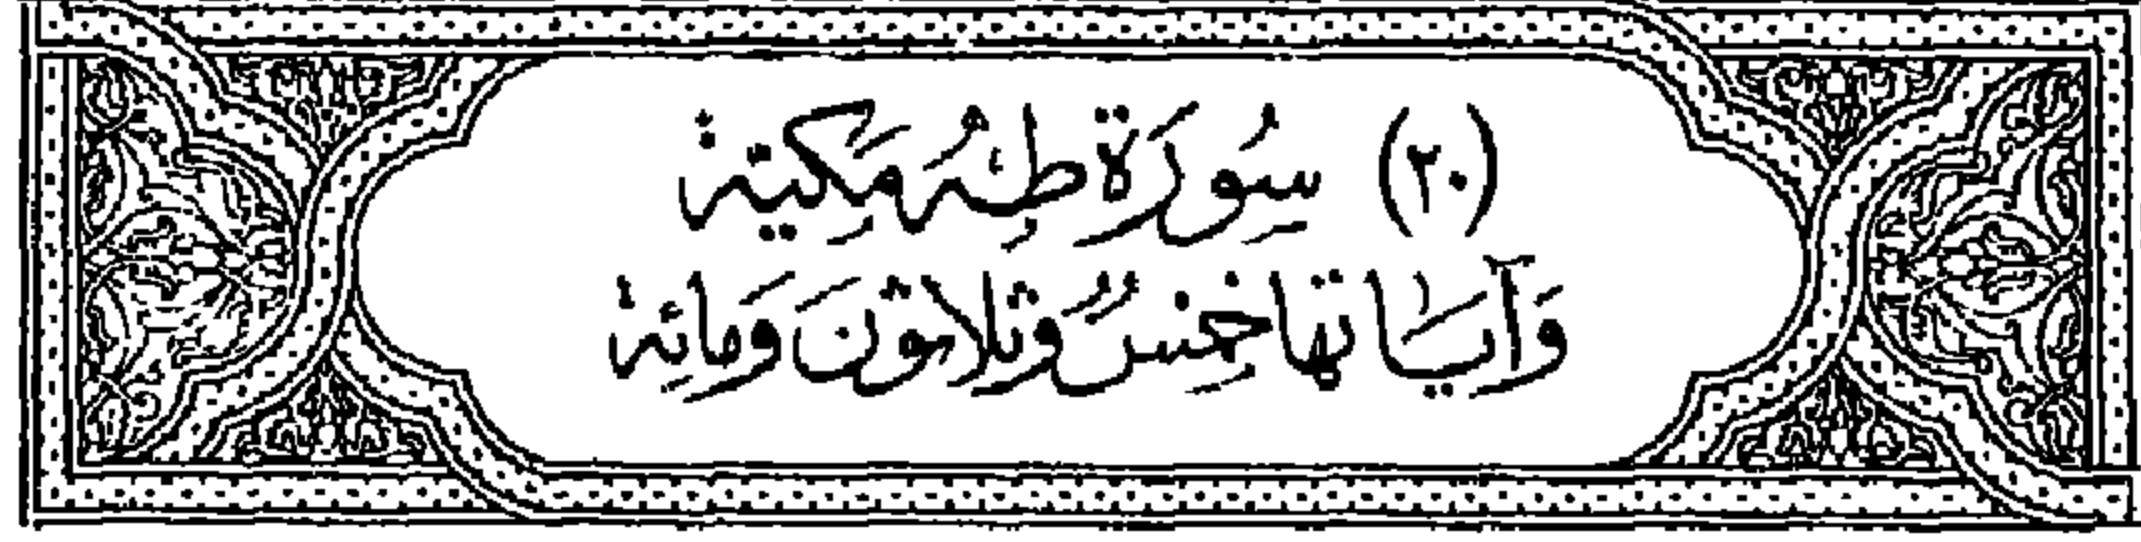 (٢٠) سُورَة طٰهٰ مَكِيّة
وَآيَاتها خِمسٌ وثلاثونَ وَمائِة